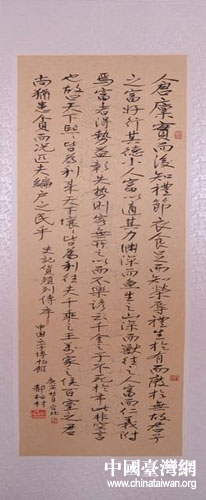 倉廩實而後知禮節衣食足而知榮辱禮生於有而廢於無故君子
之富好行其德小人富以適其力淵深而魚生之山深而獸往之人富而仁義附
焉富者得勢益彰失勢則客無所之以而不樂諺云千金之子不死於市此非空言
也故曰天下熙熙皆為利來天下壤壤皆為利往夫千乘之王萬家之侯百室之君
尚猶患貧而況匹夫編戶之民乎 史記貨殖列傳序
中國文字博物館
郝柏村
中國臺灣網
www.chinataiwan.org